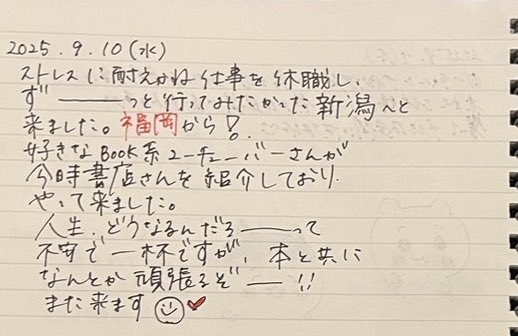 2025.9.10(水)
ストレスに耐えかね仕事を休職し、
ず———っと行ってみたかった新潟へと
来ました。福岡から!
好きなBOOK系ユーチューバーさんが
今時書店さんを紹介しており、
やって来ました。
人生、どうなるんだろ———って
不安で一杯ですが、本と共に
なんとか頑張るぞ—!!
また来ます